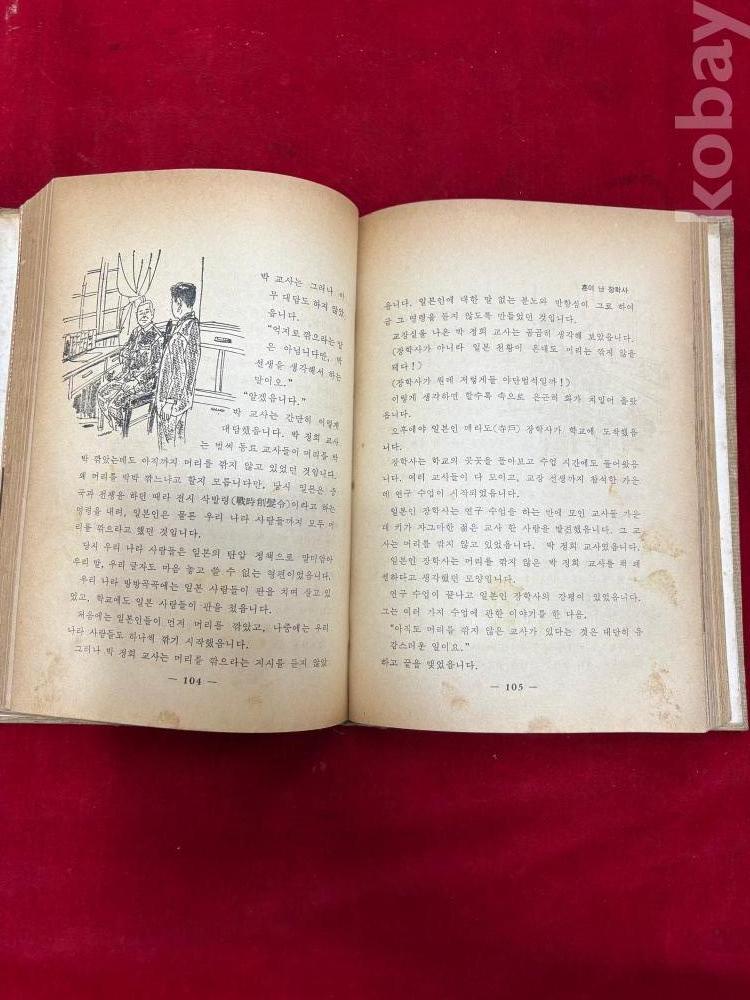 박 교사는 그러나 아
무 대답도 하지 않았
읍니다.
“억지로 깎으라는 말
은 아닙니다만, 박
선생을 생각해서 하는
말이오.”
“알겠읍니다.”
박 교사는 간단히 이렇게
대답했읍니다. 박 정희 교사
는 벌써 동료 교사들이 머리를 박
박 깎았는데도 아직까지 머리를 깎지 않고 있었던 것입니다.
왜 머리를 박박 깎느냐고 할지 모릅니다만, 당시 일본은 중
국과 전쟁을 하던 때라 전시 삭발령(戰時削髮令)이라고 하는
명령을 내려, 일본인은 물론 우리 나라 사람들까지 모두 머
리를 깎으라고 했던 것입니다.
당시 우리 나라 사람들은 일본의 탄압 정책으로 말미암아
우리 말, 우리 글자도 마음 놓고 쓸 수 없는 형편이었읍니다.
우리 나라 방방곡곡에는 일본 사람들이 판을 치며 살고 있
었고, 학교에도 일본 사람들이 판을 쳤읍니다.
처음에는 일본인들이 먼저 머리를 깎았고, 나중에는 우리
나라 사람들도 하나씩 깎기 시작했읍니다.
그러나 박 정희 교사는 머리를 깎으라는 지시를 듣지 않았
— 104 —
혼이 난 장학사
읍니다. 일본인에 대한 말 없는 분노와 반항심이 그로 하여
금 그 명령을 듣지 않도록 만들었던 것입니다.
교장실을 나온 박 정희 교사는 곰곰히 생각해 보았읍니다.
(장학사가 아니라 일본 천황이 온대도 머리는 깎지 않을
테다!)
(장학사가 뭔데 저렇게들 야단법석일까!)
이렇게 생각하면 할수록 속으로 은근히 화가 치밀어 올랐
읍니다.
오후에야 일본인 데라도(寺戶) 장학사가 학교에 도착했읍
니다.
장학사는 학교의 곳곳을 돌아보고 수업 시간에도 들어왔읍
니다. 여러 교사들이 다 모이고, 교장 선생까지 참석한 가운
데 연구 수업이 시작되었읍니다.
일본인 장학사는 연구 수업을 하는 반에 모인 교사들 가운
데 키가 자그마한 젊은 교사 한 사람을 발견했읍니다. 그 교
사는 머리를 깎지 않고 있었읍니다. 박 정희 교사였읍니다.
일본인 장학사는 머리를 깎지 않은 박 정희 교사를 퍽 괘
씸하다고 생각했던 모양입니다.
연구 수업이 끝나고 일본인 장학사의 강평이 있었읍니다.
그는 여러 가지 수업에 관한 이야기를 한 다음,
“아직도 머리를 깎지 않은 교사가 있다는 것은 대단히 유
감스러운 일이요.”
하고 끝을 맺었읍니다.
— 105 —
kobay